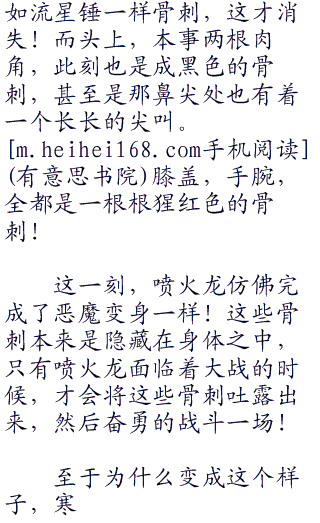 如流星锤一样骨刺，这才消
失！而头上，本事两根肉
角，此刻也是成黑色的骨
刺，甚至是那鼻尖处也有着
一个长长的尖叫。
[m.heihei168.com手机阅读]
(有意思书院)膝盖，手腕，
全都是一根根猩红色的骨
刺！
这一刻，喷火龙仿佛完
成了恶魔变身一样！这些骨
刺本来是隐藏在身体之中，
只有喷火龙面临着大战的时
候，才会将这些骨刺吐露出
来，然后奋勇的战斗一场！
至于为什么变成这个样
子，寒